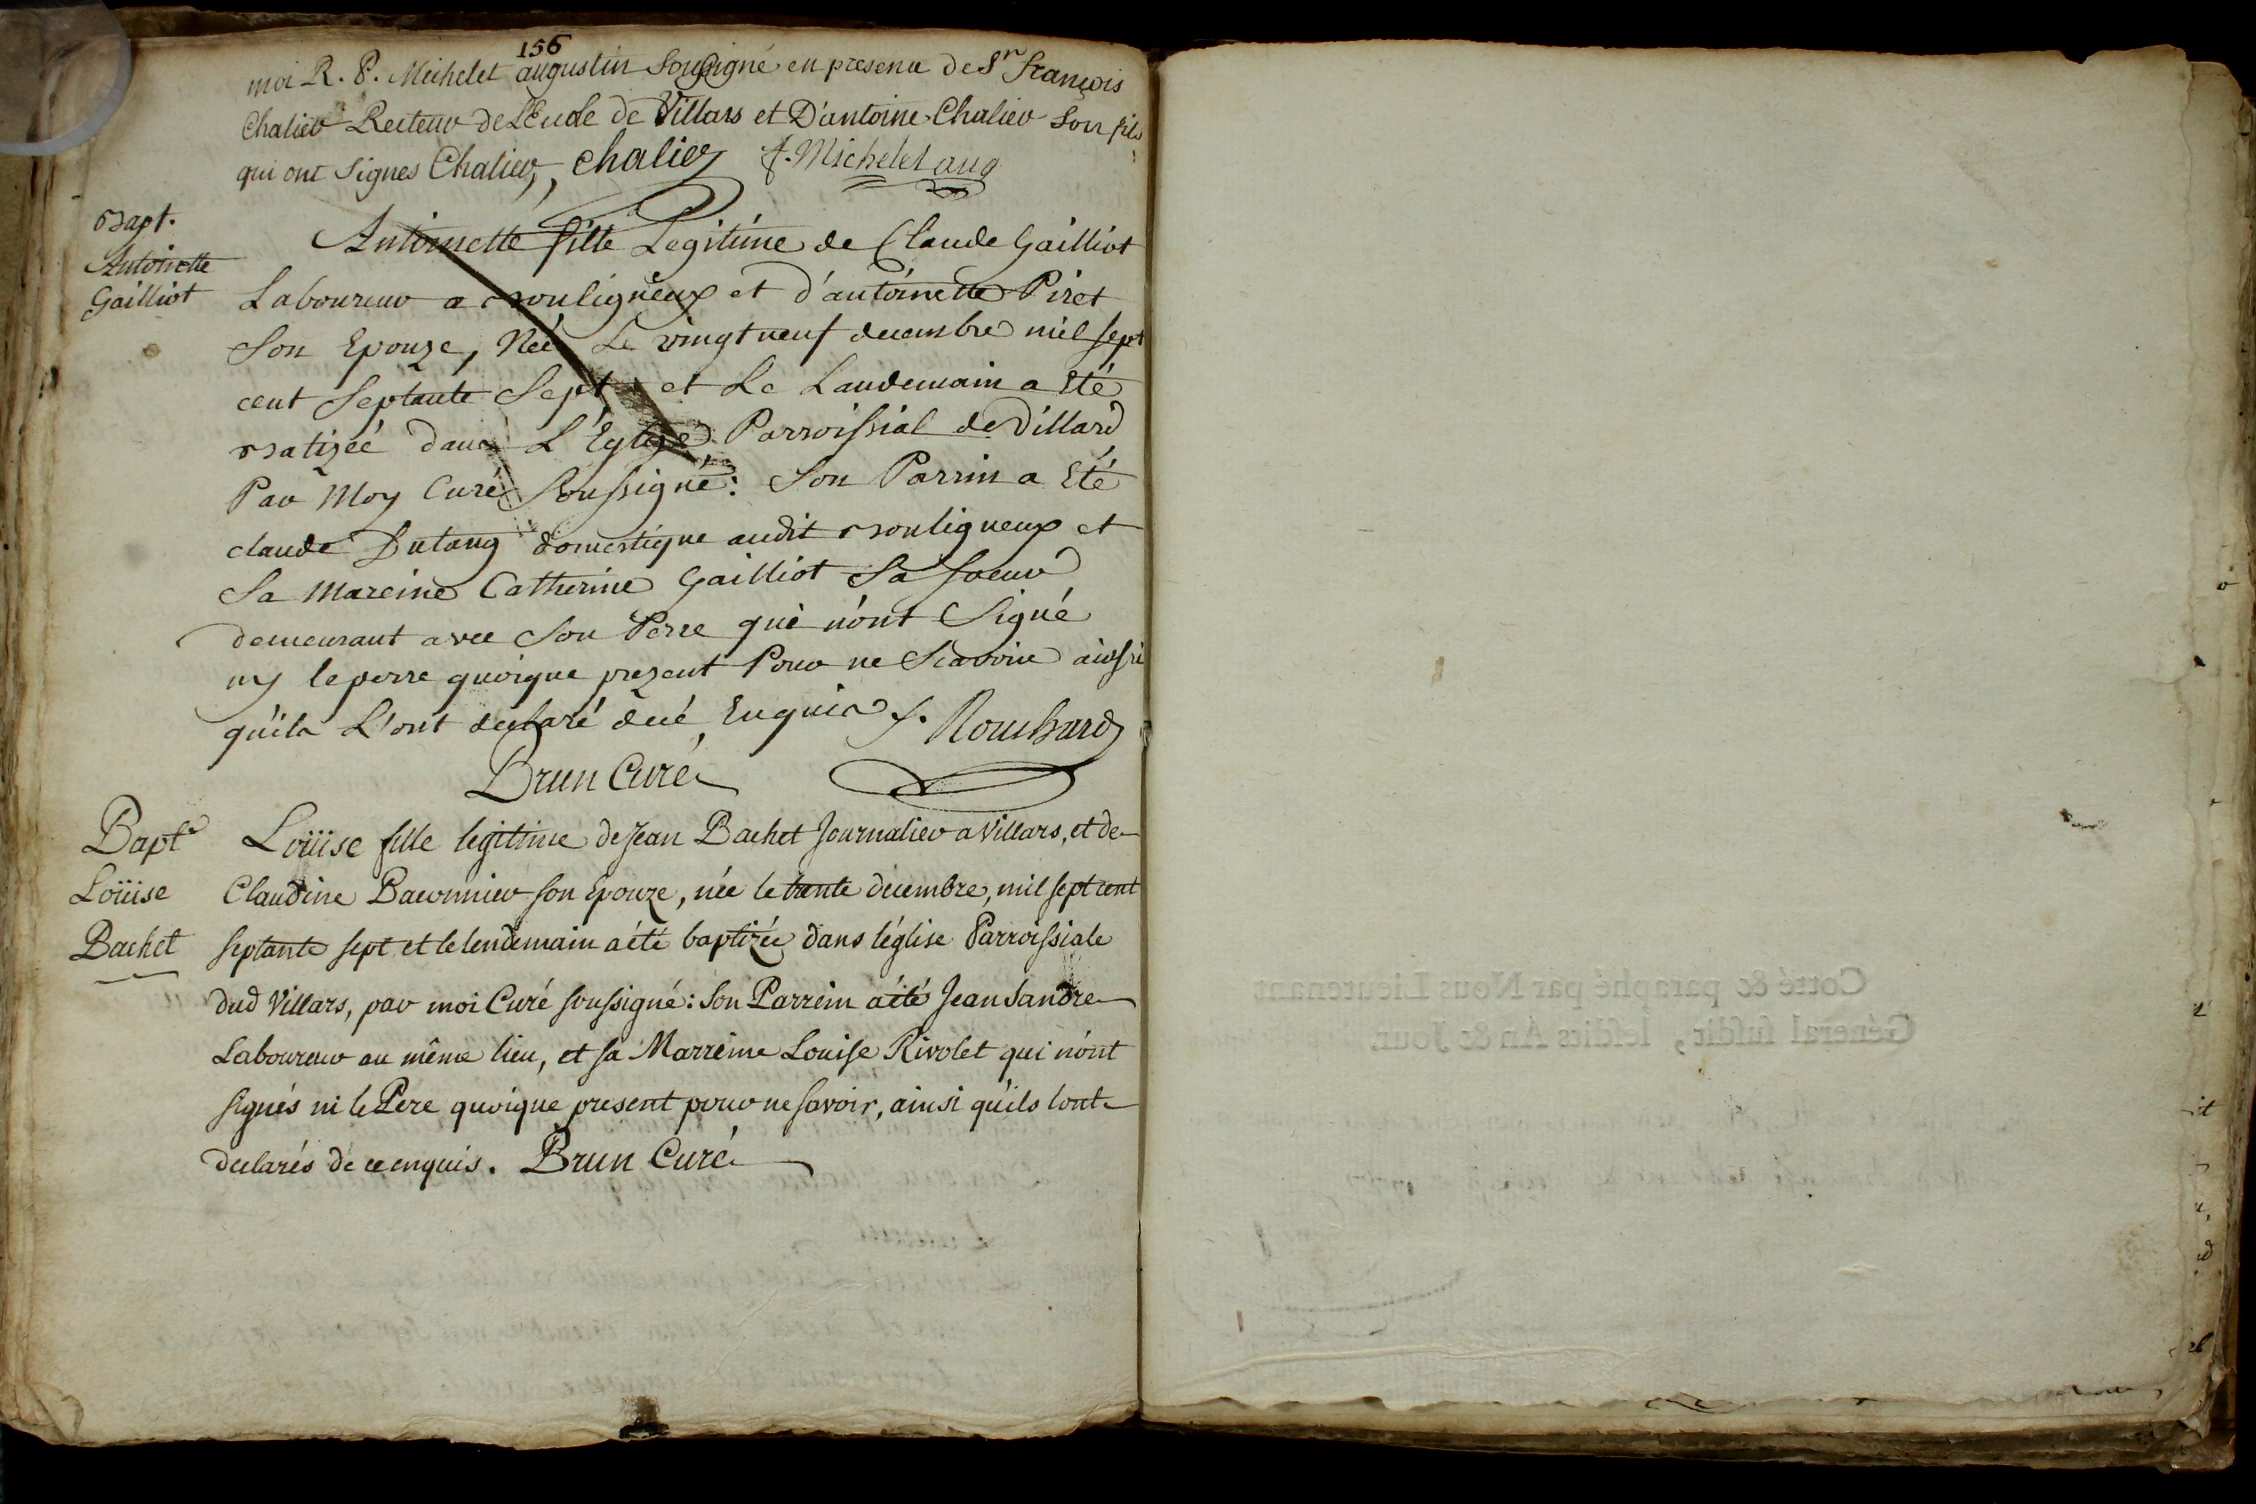 156
moi R. P. Michelet augustin soussigné en presence de Sr françois
Chalier Recteur de L'Ecole de Villars et D'antoine Chalier son fils
qui ont signes Chalier, chalier f. Michelet aug
Bapt.
Antoinette
Gailliot
Antoinette fille Legitime de Claude Gailliot
Laboureur a Bouligneux et d'antoinette Piret
Son Epouze, Néé Le vingt neuf decembre mil sept
cent Septante Sept et Le Landemain a Eté
Batizéé dans L'Eglize Parroissial de Villard
Par Moy Curé Soussigné: Son Parrin a Eté
claude Dutang domestique audit Bouligneux et
Sa Mareine Catherine Gailliot Sa soeur
demeurant avec Son Perre qui n'ont Signé
ny le perre quoique prezent Pour ne Scavoire ainssi
qu'ils L'ont declaré decé Enquis f. Rouchard
Brun Curé
Bapt.e
Loüise
Bachet
Loüise fille legitime de Jean Bachet Journalier a Villars, et de
Claudine Baconnier son Epouze, née le trente decembre, mil sept cent
septante sept et le lendemain a été baptizée dans l'église Parroissiale
dud Villars, par moi Curé soussigné: Son Parrein a été Jean Sandre
Laboureur au même lieu, et sa Marreine Louise Rivolet qui n'ont
signés ni le Pere quoique present pour ne savoir, ainsi qu'ils l'ont
declarés de ce enquis. Brun Curé
Cotté & paraphé par Nous Lieutenant
Géneral susdit, lesdits An & Jour.